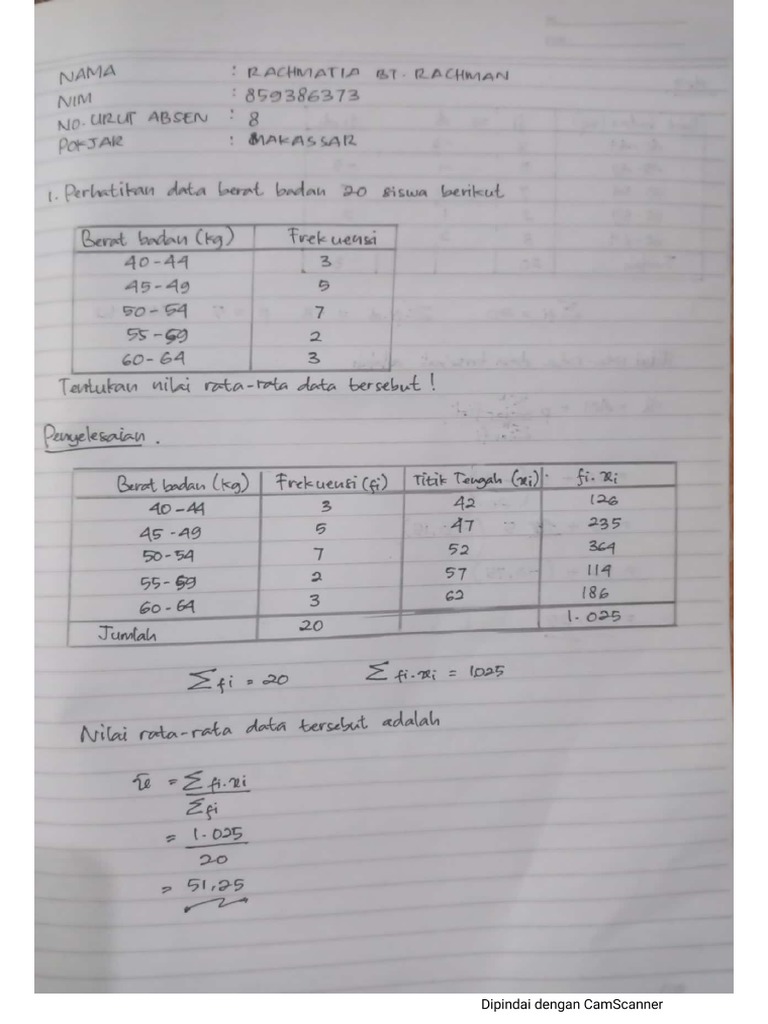 NAMA : RACHMATIA BT. RACHMAN
NIM : 859386373
NO. URUT ABSEN : 8
POKJAR : MAKASSAR
1. Perhatikan data berat badan 20 siswa berikut
Berat badan (kg) Frekuensi
40-44 3
45-49 5
50-54 7
55-59 2
60-64 3
Tentukan nilai rata-rata data tersebut !
Penyelesaian.
Berat badan (kg) Frekuensi (fi) Titik Tengah (xi) fi.xi
40-44 3 42 126
45-49 5 47 235
50-54 7 52 364
55-59 2 57 114
60-64 3 62 186
Jumlah 20 1.025
∑fi = 20 ∑fi.xi = 1025
Nilai rata-rata data tersebut adalah
x̄ = ∑fi.xi
∑fi
= 1.025
20
= 51,25
Dipindai dengan CamScanner